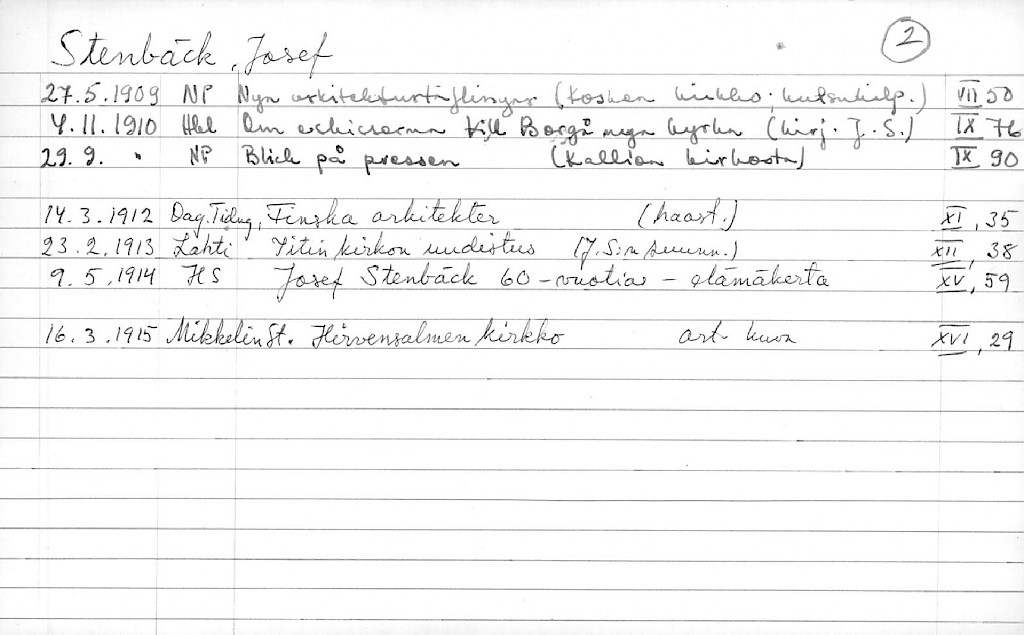 Stenbäck, Josef 2
27.5.1909 NP Nya arkitekturtäflingar (Kosken kirkko; kutsukilp.) VII 50
4.11.1910 Hbl Om eskisserna till Borgå nya kyrka (kirj. J.S.) IX 76
29.9. " NP Blick på pressen (Kallion kirkosta) IX 90
14.3.1912 Dag.Tidng, Finska arkitekter (haast.) XI, 35
23.2.1913 Lahti Iitin kirkon uudistus (J.S:n suunn.) XII, 38
9.5.1914 HS Josef Stenbäck 60-vuotias - elämäkerta XV, 59
16.3.1915 Mikkelin St. Hirvensalmen kirkko art. kuva XVI, 29